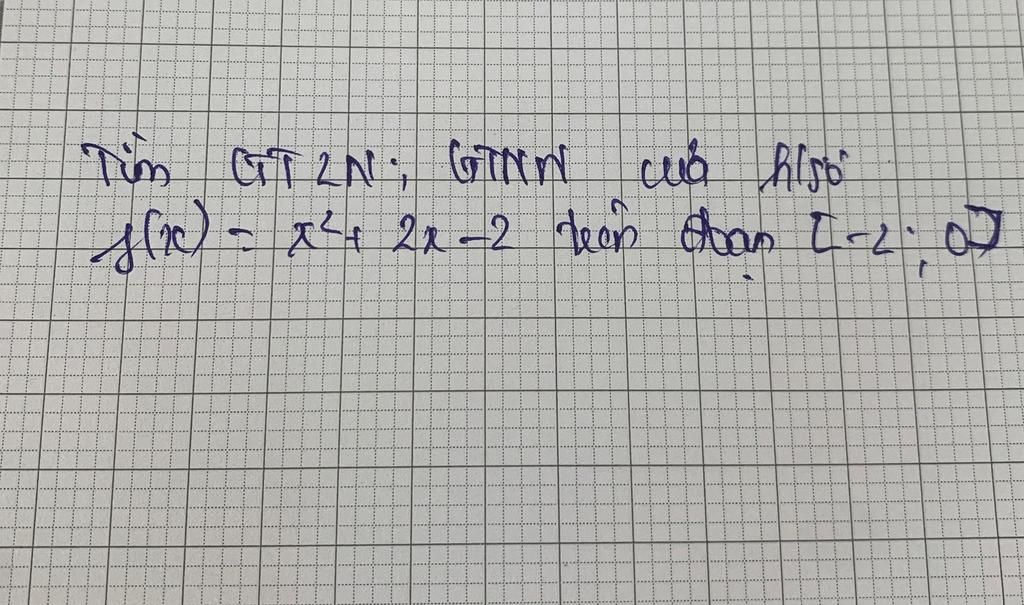 Tìm GTLN; GTNN của h/số
f(x) = x² + 2x - 2 trên đoạn [-2; 0]